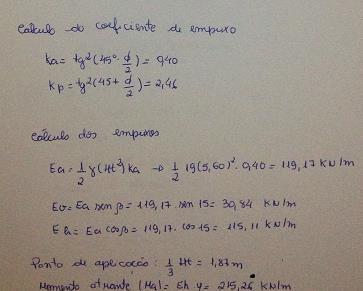 Calculo do coeficiente de empuxo
Ka = tg²(45° - ϕ/2) = 0,40
Kp = tg²(45 + ϕ/2) = 2,46
Cálculo dos empuxos
Ea = 1/2 γ (Ht²) Ka → 1/2 19 (5,60)² · 0,40 = 119,17 KN/m
Ev = Ea sen β = 119,17 · sen 15 = 30,84 KN/m
Eh = Ea cos β = 119,17 · cos 15 = 115,11 KN/m
Ponto de aplicação: 1/3 Ht = 1,87 m
Momento atuante (Ma) = Eh · y = 215,26 KN/m